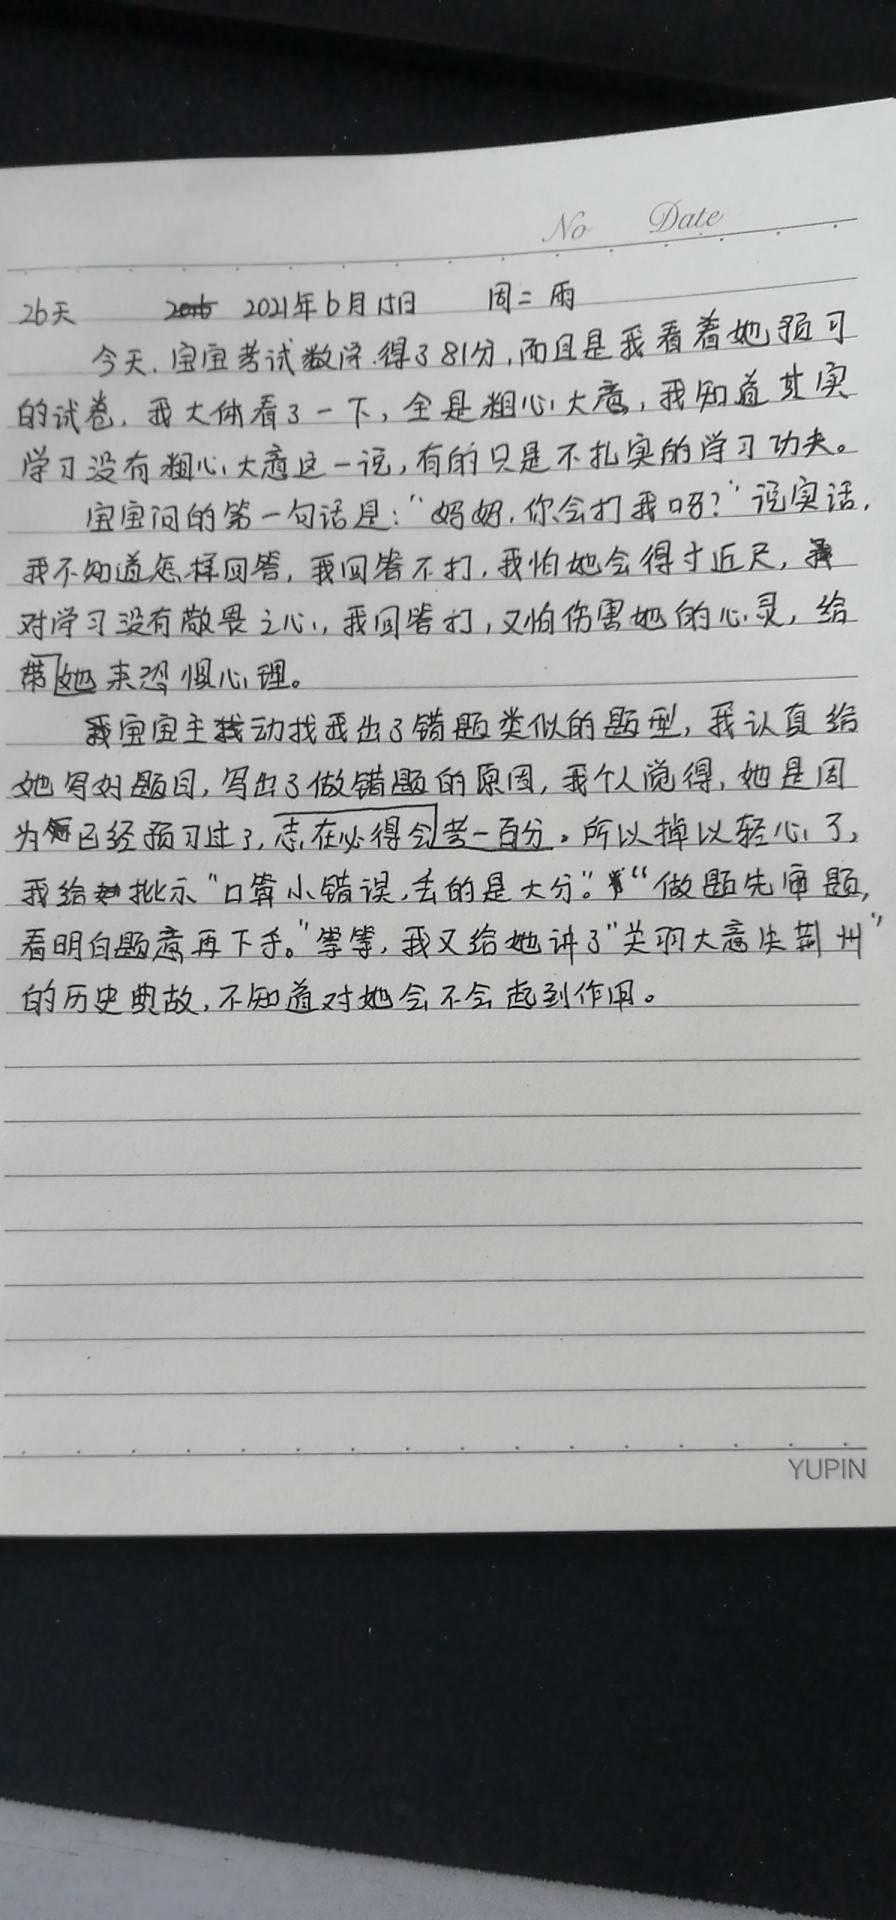 No Date
26天 2021年6月15日 周二 雨
今天,宝宝考试数学得了81分,而且是我看着她预习
的试卷,我大体看了一下,全是粗心大意,我知道其实
学习没有粗心大意这一说,有的只是不扎实的学习功夫。
宝宝问的第一句话是:“妈妈,你会打我吗?”说实话,
我不知道怎样回答,我回答不打,我怕她会得寸近尺,
对学习没有敬畏之心,我回答打,又怕伤害她的心灵,给
带她来恐惧心理。
宝宝主动找我出了错题类似的题型,我认真给
她写好题目,写出了做错题的原因,我个人觉得,她是因
为已经预习过了,志在必得会考一百分。所以掉以轻心了,
我给批示“口算小错误,丢的是大分”。“做题先审题,
看明白题意再下手。”等等,我又给她讲了“关羽大意失荆州”
的历史典故,不知道对她会不会起到作用。
YUPIN